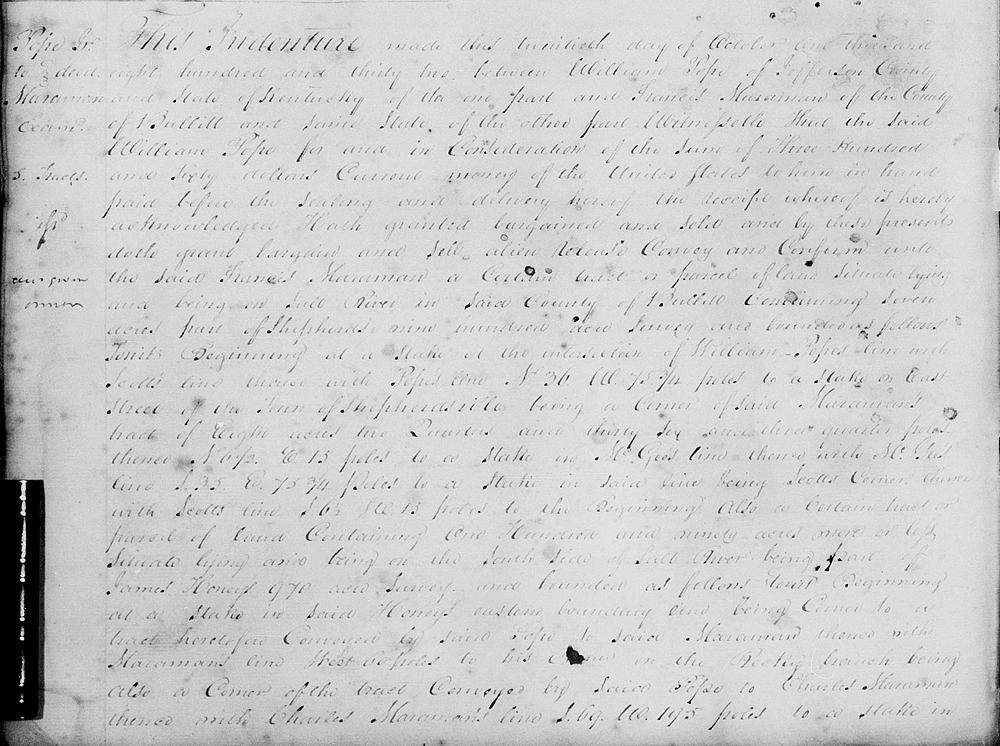 Pope Jr.
to deed
Maraman
Examd.
5. Tracts.
This Indenture made this twentieth day of October one thousand
eight hundred and thirty two between William Pope of Jefferson County
and State of Kentucky of the one part and Francis Maraman of the County
of Bullitt and same State of the other part Witnesseth that the said
William Pope for and in Consideration of the sum of Three Hundred
and Sixty dollars Current money of the United States to him in hand
paid before the sealing and delivery hereof the receipt whereof is hereby
acknowledged Hath granted bargained and sold and by these presents
doth grant bargain and sell alien release Convey and Confirm unto
the said Francis Maraman a Certain tract or parcel of land Situate lying
and being on Salt River in said County of Bullitt Containing seven
acres part of Shepherds nine hundred acre survey and bounded as follows
Towit: Beginning at a stake at the intersection of William Popes line with
Scotts line thence with Popes line N 36 W. 75 3/4 poles to a stake on East
Street of the Town of Shepherdsville being a Corner of said Maraman's
tract of Eight acres two Quarters and thirty six and three quarter poles
thence N 61/2. E. 15 poles to a stake in McGees line thence with McGee's
line S. 35. E. 75 3/4 Poles to a stake in said line being Scotts Corner thence
with Scotts line S 61/2 W. 15 poles to the Beginning Also a Certain tract or
parcel of land Containing One Hundred and ninety acres more or less
Situate lying and being on the South side of Salt River being part of
James Honeys 970 acre survey and bounded as follows Towit Beginning
at a stake in said Honeys eastern boundary line being Corner to a
tract heretofore Conveyed by said Pope to said Maraman thence with
Maraman's line West 60 poles to his Corner on the Rocky branch being
also a Corner of the tract Conveyed by said Pope to Charles Maraman
thence with Charles Maraman's line S. 69. W. 195 poles to a stake in